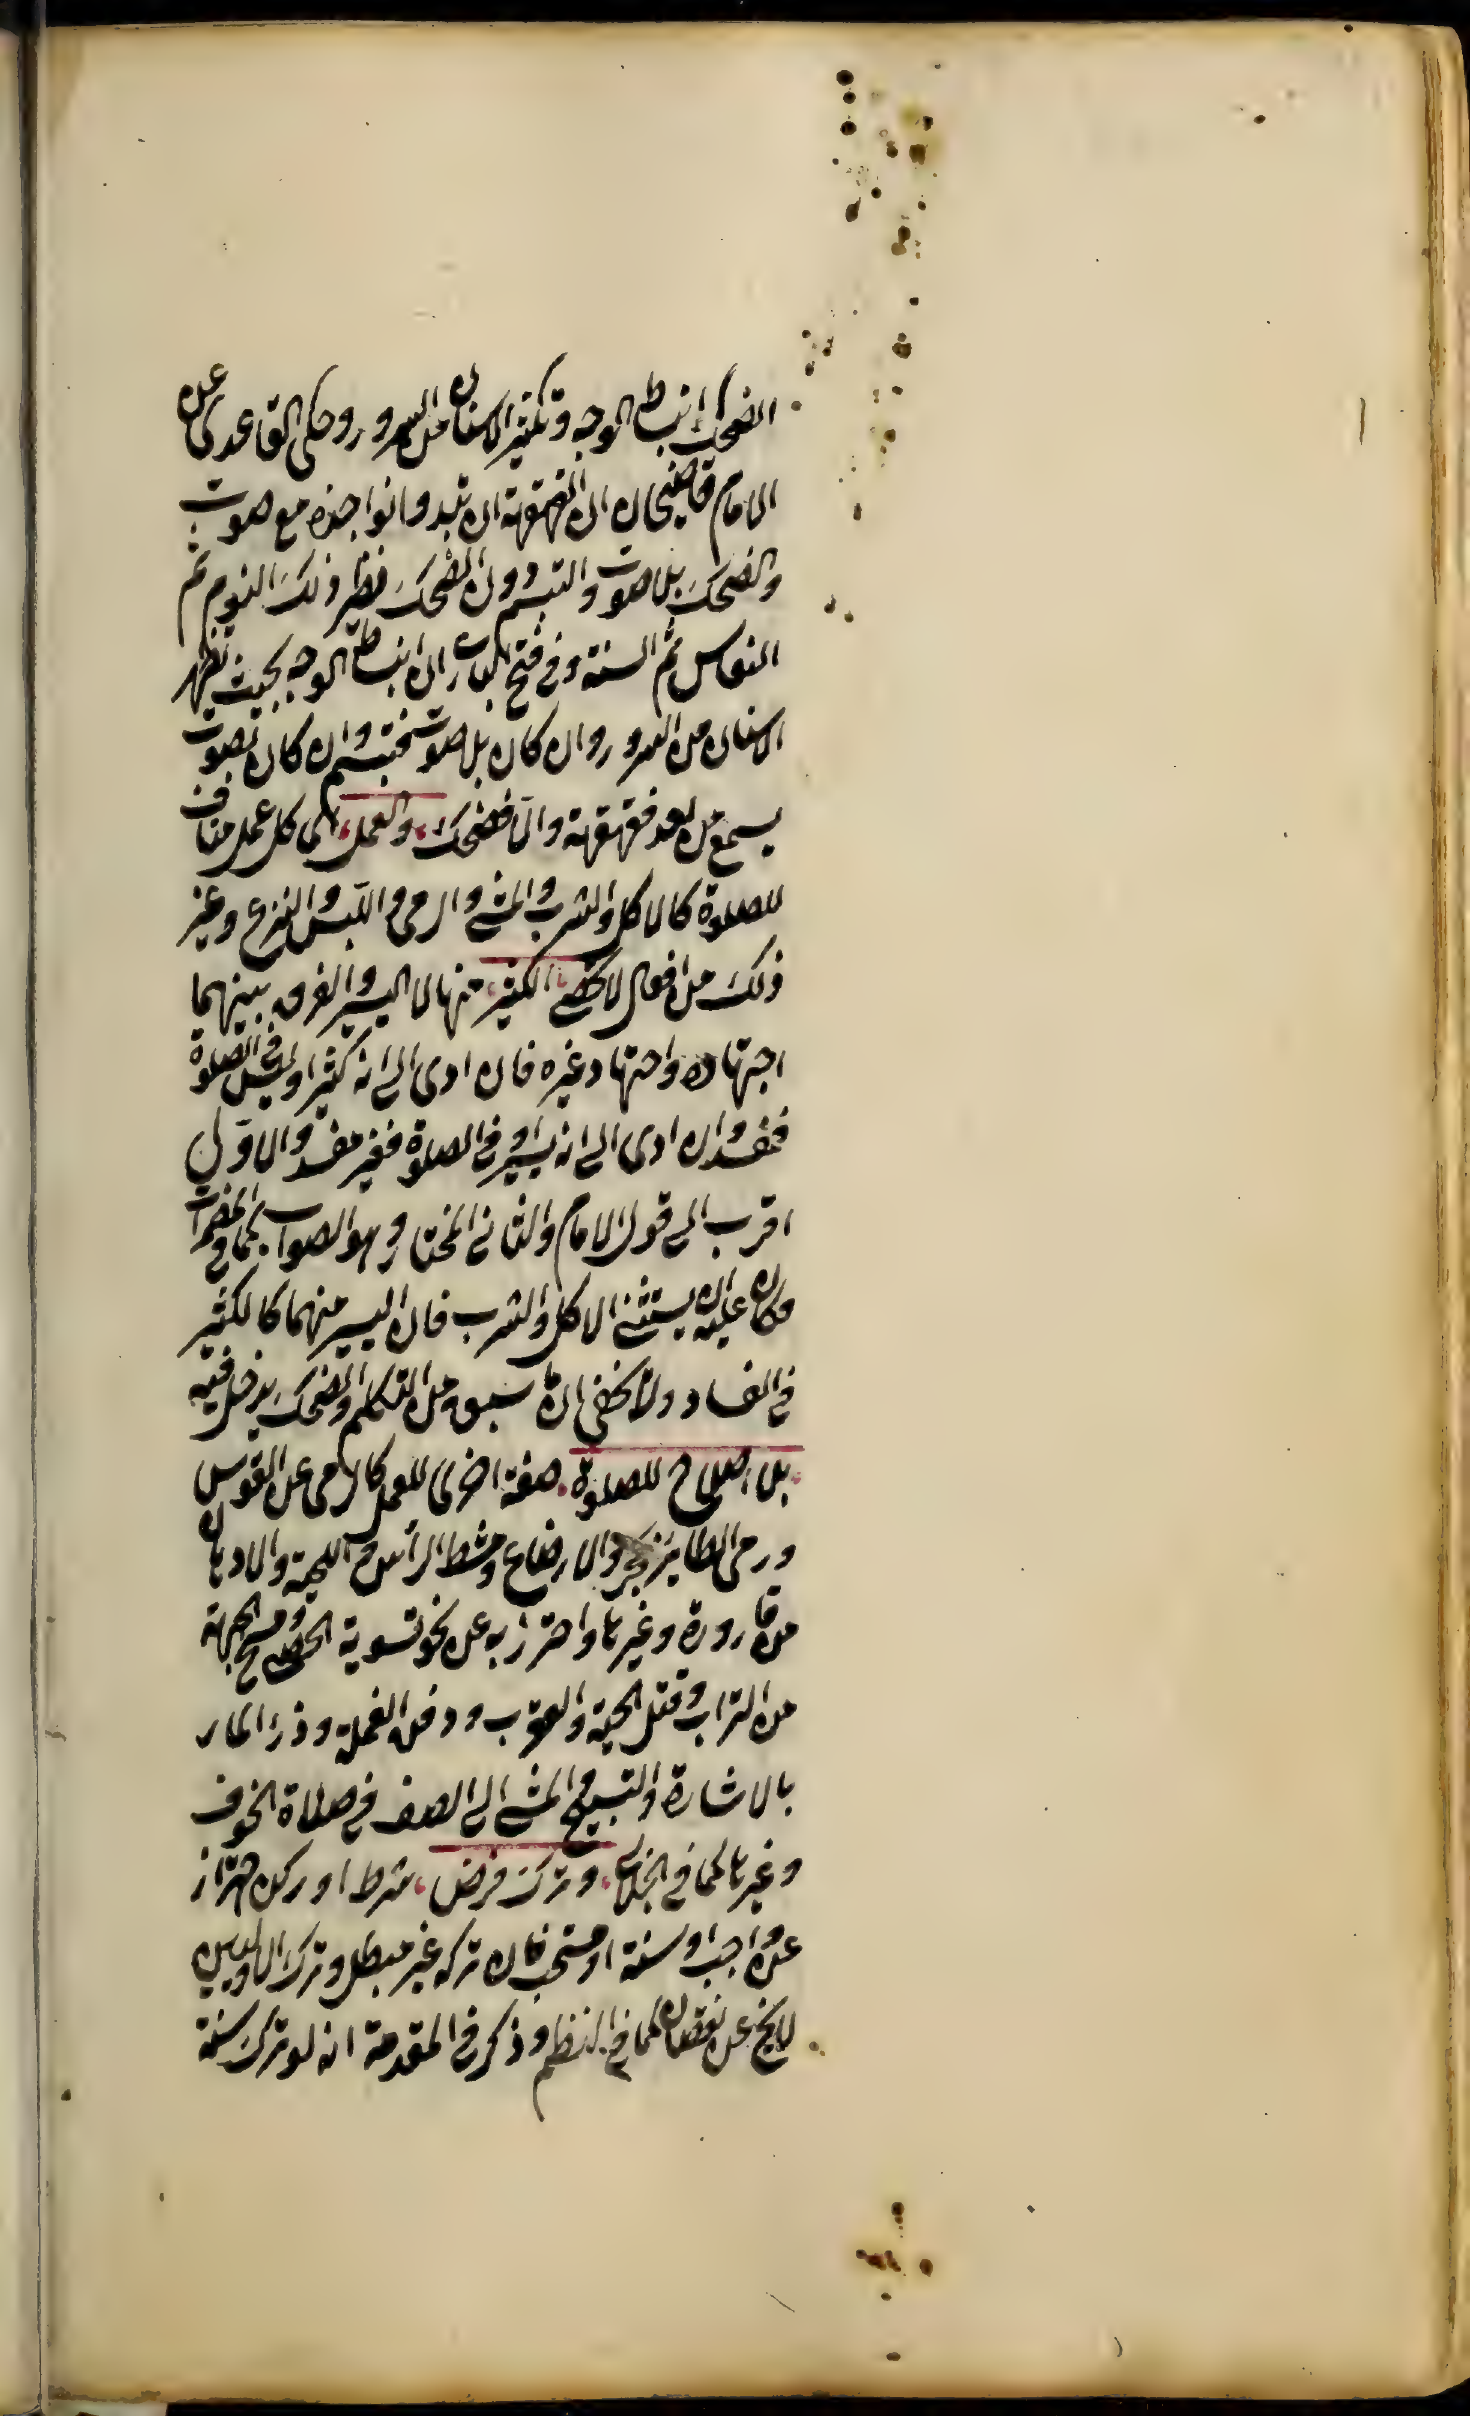 الضحك انبساط الوجه وتكثير الاسنان من السرور وحكى القاعدى عن
الامام قاضيخان ان القهقهة ان تبدو نواجذه مع صوت
والضحك بلا صوت والتبسم دون الضحك نظير ذلك النوم ثم
النعاس ثم السنة وفي فتح الباري ان انبساط الوجه بحيث تظهر
الاسنان من السرور وان كان بلا صوت فتبسم وان كان بصوت
يسمع من بعد فقهقهة والا فضحك والعمل اى كل عمل مناف
للصلوة كالاكل والشرب والمشي والرمي واللبس والنزع وغير
ذلك من افعال لا تحصى الكثير منها لا اليسير والفرق بينهما
اجتهاده واجتهاد غيره فان ادى الى انه كثير او ليس في الصلوة
فمفسد وان ادى الى انه يسير او في الصلوة فغير مفسد والاول
اقرب الى قول الامام والثاني المختار وهو الصواب كما في المضمرات
وكان عليه ان يستثني الاكل والشرب فان اليسير منهما كالكثير
في الفساد ولا يخفى ان ما سبق من التكلم والضحك يدخل فيه
بلا اصلاح للصلوة صفة اخرى للعمل كالرمي عن القوس
ورمي الطائر بحجر والارضاع ومشط الرأس واللحية والادهان
من قارورة وغيرها واحترز به عن نحو تسوية الحصى ومسح الجبهة
من التراب وقتل الحية والعقرب ودفن القملة وذرء المار
بالاشارة والتسبيح والمشي الى الصف في صلاة الخوف
وغيرها كما في الجلابي وترك فرض شرط او ركن احتراز
عن واجب او سنة او مستحب فان تركه غير مبطل وترك الاوليين
لا يخ عن نقصان كما في النظم وذكر في المقدمة انه لو ترك سنة